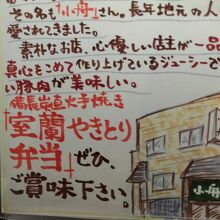 その名も「小舟」さん。長年地元の人
愛されてました。
素朴なお店、心優しい店主が一品
真心をこめて作り上げているジューシーで
い豚肉が美味しい。
備長炭炭火手焼き
「室蘭やきとり
弁当」ぜひ、
ご賞味下さい。
小舟